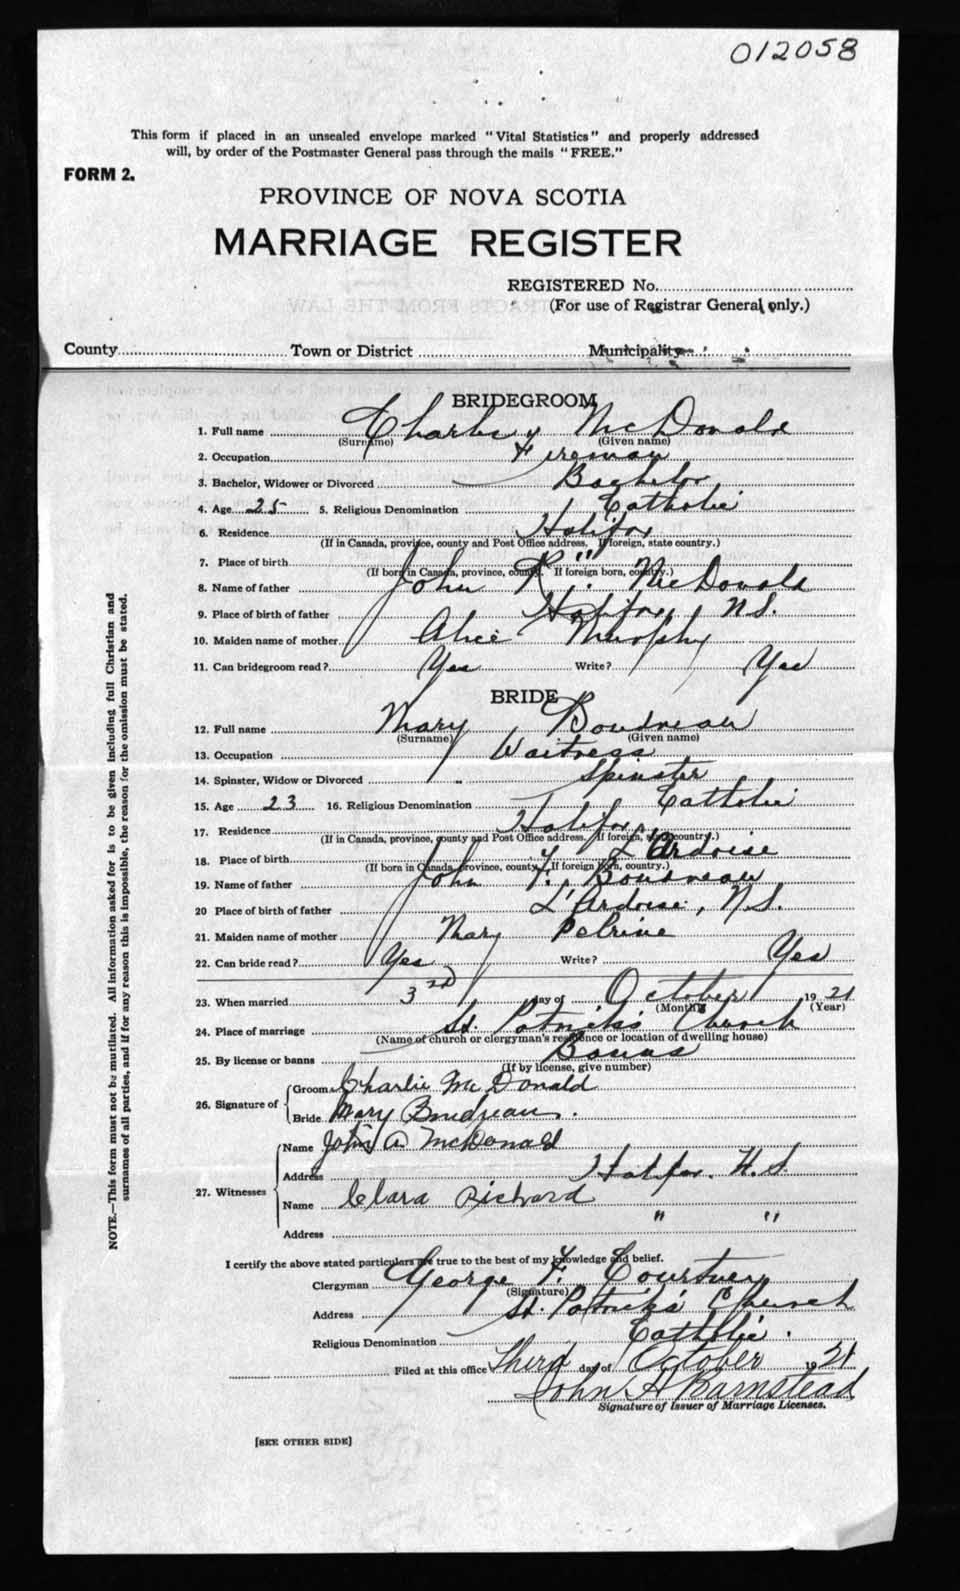 012058
This form if placed in an unsealed envelope marked "Vital Statistics" and properly addressed
will, by order of the Postmaster General pass through the mails "FREE."
FORM 2.
PROVINCE OF NOVA SCOTIA
MARRIAGE REGISTER
REGISTERED No.
(For use of Registrar General only.)
County Town or District Municipality
BRIDEGROOM
1. Full name Charles McDonald
(Surname) (Given name)
2. Occupation Fireman
3. Bachelor, Widower or Divorced Bachelor
4. Age 25 5. Religious Denomination Catholic
6. Residence Halifax
(If in Canada, province, county and Post Office address. If foreign, state country.)
7. Place of birth "
(If born in Canada, province, county. If foreign born, country.)
8. Name of father John R. McDonald
9. Place of birth of father Halifax, N.S.
10. Maiden name of mother Alice Murphy
11. Can bridegroom read? Yes Write? Yes
BRIDE
12. Full name Mary Boudreau
(Surname) (Given name)
13. Occupation Waitress
14. Spinster, Widow or Divorced Spinster
15. Age 23 16. Religious Denomination Catholic
17. Residence Halifax
(If in Canada, province, county and Post Office address. If foreign, state country.)
18. Place of birth L'Ardoise
(If born in Canada, province, county. If foreign born, country.)
19. Name of father John F. Boudreau
20 Place of birth of father L'Ardoise, N.S.
21. Maiden name of mother Mary Pelrine
22. Can bride read? Yes Write? Yes
23. When married 3rd day of October 1921
(Month) (Year)
24. Place of marriage St. Patrick's Church
(Name of church or clergyman's residence or location of dwelling house)
25. By license or banns Banns
(If by license, give number)
26. Signature of Groom Charlie McDonald
Bride Mary Boudreau.
27. Witnesses Name John A McDonald
Address Halifax. N.S.
Name Clara Richard
Address " "
I certify the above stated particulars are true to the best of my knowledge and belief.
Clergyman George F. Courtney
(Signature)
Address St. Patrick's Church
Religious Denomination Catholic.
Filed at this office Third day of October 1921
John A Barnstead
Signature of Issuer of Marriage Licenses.
[SEE OTHER SIDE]
NOTE.—This form must not be mutilated. All information asked for is to be given including full Christian and
surnames of all parties, and if for any reason this is impossible, the reason for the omission must be stated.